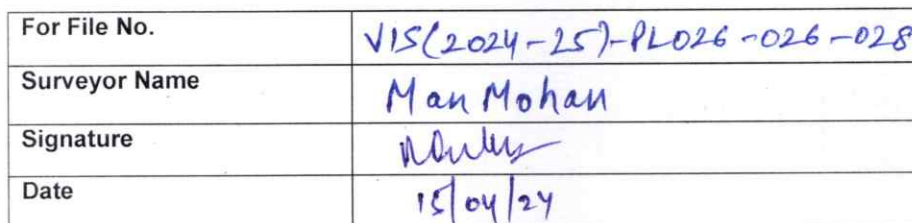 For File No. VIS(2024-25)-PL026-026-028
Surveyor Name Man Mohan
Signature
Date 15/04/24